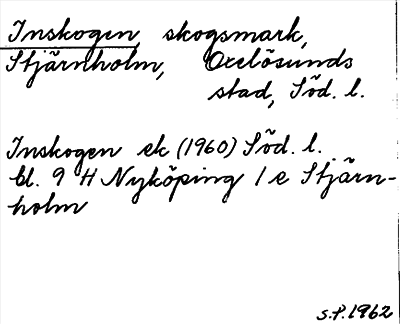 Inskogen skogsmark,
Stjärnholm, Oxelösunds
stad, Söd. l.
Inskogen ek (1960) Söd. l.
bl. 9 H Nyköping 1 e Stjärn-
holm
S.P. 1962